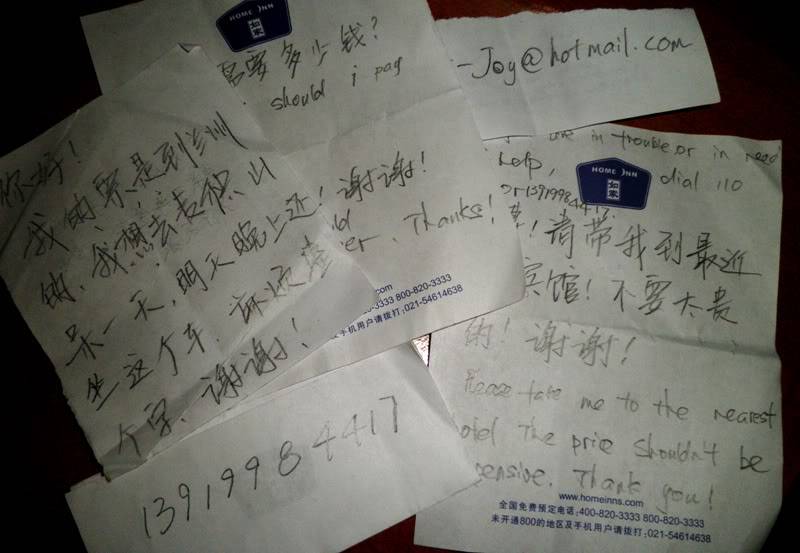 HOME INN
如家
需要多少钱?
should i pay
谢谢!
Thanks!
.com
800-820-3333
及手机用户请拨打:021-54614638
-Joy@hotmail.com
你好!
我的票是到兰州
的,我想去麦积山
呆一天,明天晚上还
坐这个车,麻烦签
个字、谢谢!
13919984417
are in trouble or in need
help, dial 110
or 13919984417
HOME INN
如家
! 请带我到最近
宾馆!不要太贵
的!谢谢!
Please take me to the nearest
hotel The price shouldn't be
pensive. Thank you!
www.homeinns.com
全国免费预定电话:400-820-3333 800-820-3333
未开通800的地区及手机用户请拨打:021-54614638